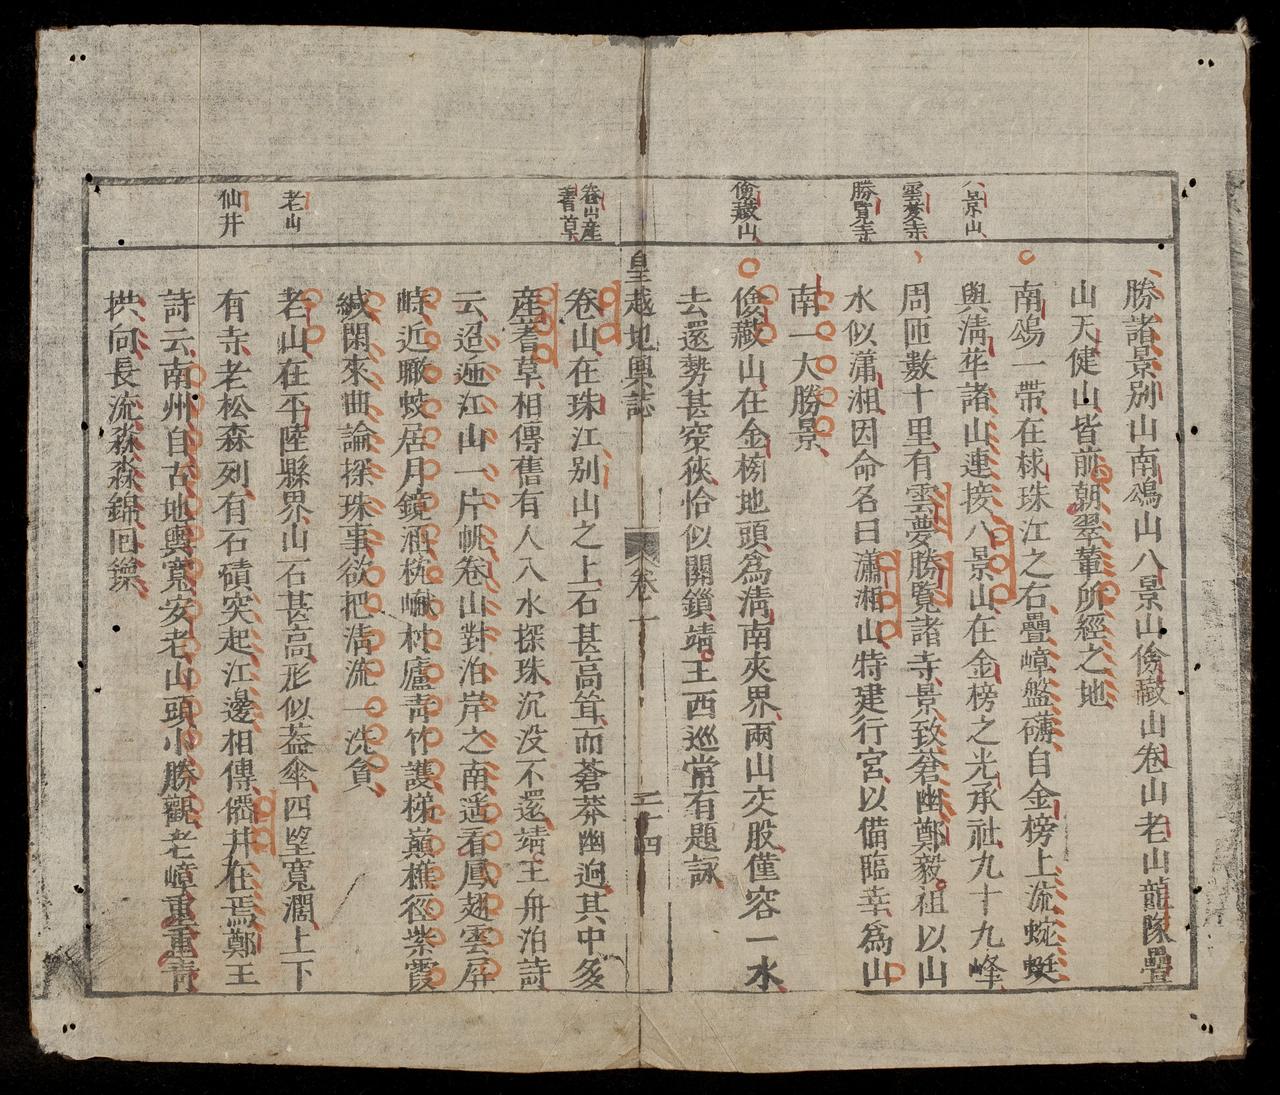 八景山
雲夢寺
勝覽寺
儉藏山
勝諸景別山南鴻山八景山儉藏山卷山老山龍隊疊
山天健山皆前朝翠輦所經之地
南鴻一帶在梂珠江之右疊嶂盤礴自金榜上流蜿蜒
與淸華諸山連接八景山在金榜之光承社九十九峰
周匝數十里有雲夢勝覽諸寺景致窈幽鄭毅祖以山
水似瀟湘因命名曰瀟湘山特建行宮以備臨幸爲山
南一大勝景
儉藏山在金榜地頭爲淸南夾界兩山交股僅容一水
去還勢甚窄狹恰似關鎖靖王西巡常有題詠
皇越地輿誌
卷一
二十四
卷山產蓍草
老山
仙井
卷山在珠江別山之上石甚高聳而蒼莽幽迥其中多
產蓍草相傳舊有人入水探珠沉没不還靖王舟泊詩
云迢迤江山一片帆卷山對泊岸之南遥看鳳翅雲屏
峙近瞰蛟居月鏡涵梡橛村廬靑竹護梯巔樵徑紫霞
緘閑來曲論探珠事欲把淸流一洗貪
老山在平陸縣界山石甚高形似蓋傘四望寬濶上下
有寺老松森列有石磧突起江邊相傳僊井在焉鄭王
詩云南州自古地輿寬安老山頭小勝觀老嶂重重靑
拱向長流淼淼錦囘鑅